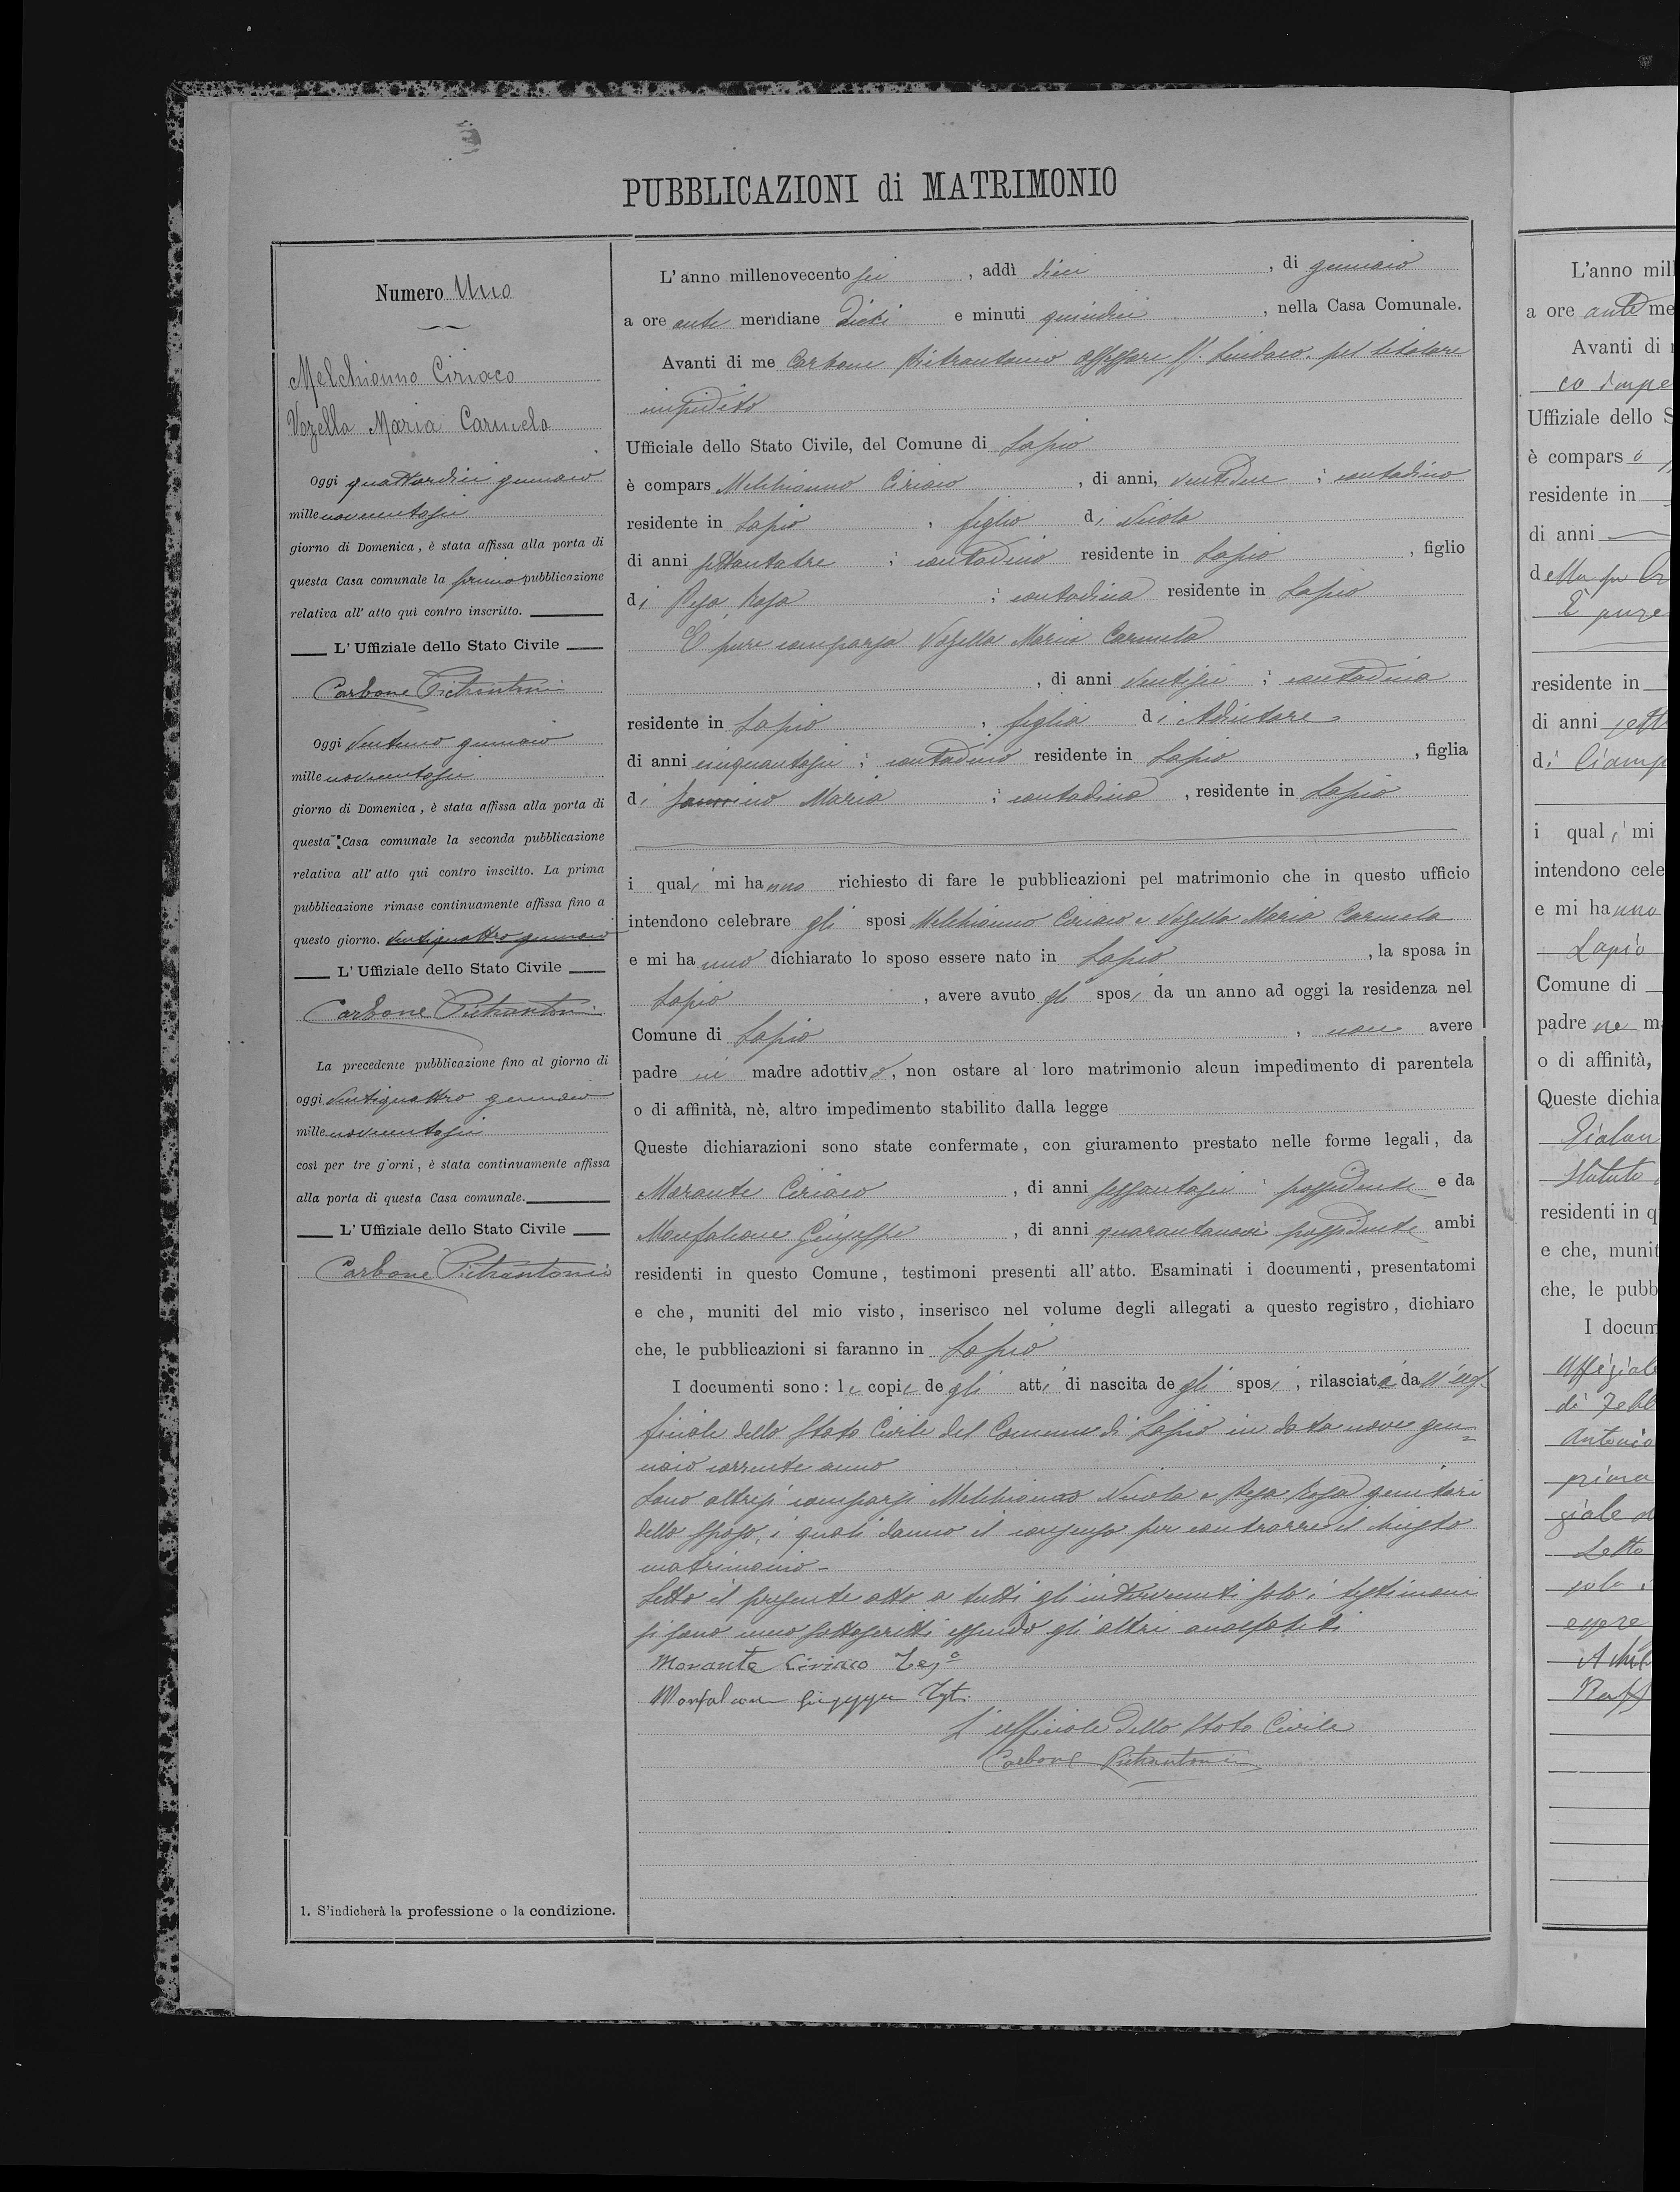 PUBBLICAZIONI di MATRIMONIO
Numero Uno
Melchionno Ciriaco
Vozella Maria Carmela
Oggi quattordici gennaio
mille novecentosei
giorno di Domenica, è stata affissa alla porta di
questa Casa comunale la prima pubblicazione
relativa all' atto quì contro inscritto.
L' Uffiziale dello Stato Civile
Carbone Pietrantonio
Oggi Ventuno gennaio
mille novecentosei
giorno di Domenica, è stata affissa alla porta di
questa Casa comunale la seconda pubblicazione
relativa all' atto qui contro inscitto. La prima
pubblicazione rimase continuamente affissa fino a
questo giorno. ventiquattro gennaio
L' Uffiziale dello Stato Civile
Carbone Pietrantonio
La precedente pubblicazione fino al giorno di
oggi Ventiquattro gennaio
mille novecentosei
così per tre giorni, è stata continuamente affissa
alla porta di questa Casa comunale.
L' Uffiziale dello Stato Civile
Carbone Pietrantonio
1. S'indicherà la professione o la condizione.
L' anno millenovecento sei, addì dieci, di gennaio
a ore ante meridiane dieci e minuti quindici, nella Casa Comunale.
Avanti di me Carbone Pietrantonio assessore ff. Sindaco pel titolare
impedito
Ufficiale dello Stato Civile, del Comune di Lapio
è compars Melchionno Ciriaco, di anni, ventidue ; contadino
residente in Lapio, figlio di Nicola
di anni settantatre ; contadino residente in Lapio, figlio
di Pesa Rosa ; contadina residente in Lapio
È pure comparsa Vozella Maria Carmela
, di anni Ventisei ; contadina
residente in Lapio, figlia di Adiutore
di anni cinquantasei ; contadino residente in Lapio, figlia
di Iannino Maria ; contadina, residente in Lapio
i quali mi hanno richiesto di fare le pubblicazioni pel matrimonio che in questo ufficio
intendono celebrare gli sposi Melchionno Ciriaco e Vozella Maria Carmela
e mi hanno dichiarato lo sposo essere nato in Lapio, la sposa in
Lapio, avere avuto gli sposi da un anno ad oggi la residenza nel
Comune di Lapio, non avere
padre nè madre adottivo, non ostare al loro matrimonio alcun impedimento di parentela
o di affinità, nè, altro impedimento stabilito dalla legge
Queste dichiarazioni sono state confermate, con giuramento prestato nelle forme legali, da
Morante Ciriaco, di anni sessantasei ; possidente e da
Monfalcone Giuseppe, di anni quarantanove possidente ambi
residenti in questo Comune, testimoni presenti all' atto. Esaminati i documenti, presentatomi
e che, muniti del mio visto, inserisco nel volume degli allegati a questo registro, dichiaro
che, le pubblicazioni si faranno in Lapio
I documenti sono: le copie degli atti di nascita degli sposi, rilasciate dall'Uf
ficiale dello Stato Civile del Comune di Lapio in data nove gen=
naio corrente anno
Sono altresì comparsi Melchionno Nicola e Pesa Rosa genitori
dello sposo, i quali danno il consenso per contrarre il chiesto
matrimonio -
Letto il presente atto a tutti gli intervenuti solo i testimoni
si sono meco sottoscritti essendo gli altri analfabeti
Morante Ciriaco Tes°
Monfalcone Giuseppe Test.
L'ufficiale dello Stato Civile
Carbone Pietrantonio
L'anno mill
a ore ante me
Avanti di
Uffiziale dello S
è compars
residente in
di anni
residente in
di anni
di Ciamp
i quali mi
intendono cele
e mi hanno
Lapio
Comune di
padre ne m
o di affinità,
Queste dichia
residenti in q
e che, munit
che, le pubb
I docum
di Febb
Antonio
prima
Letto
essere